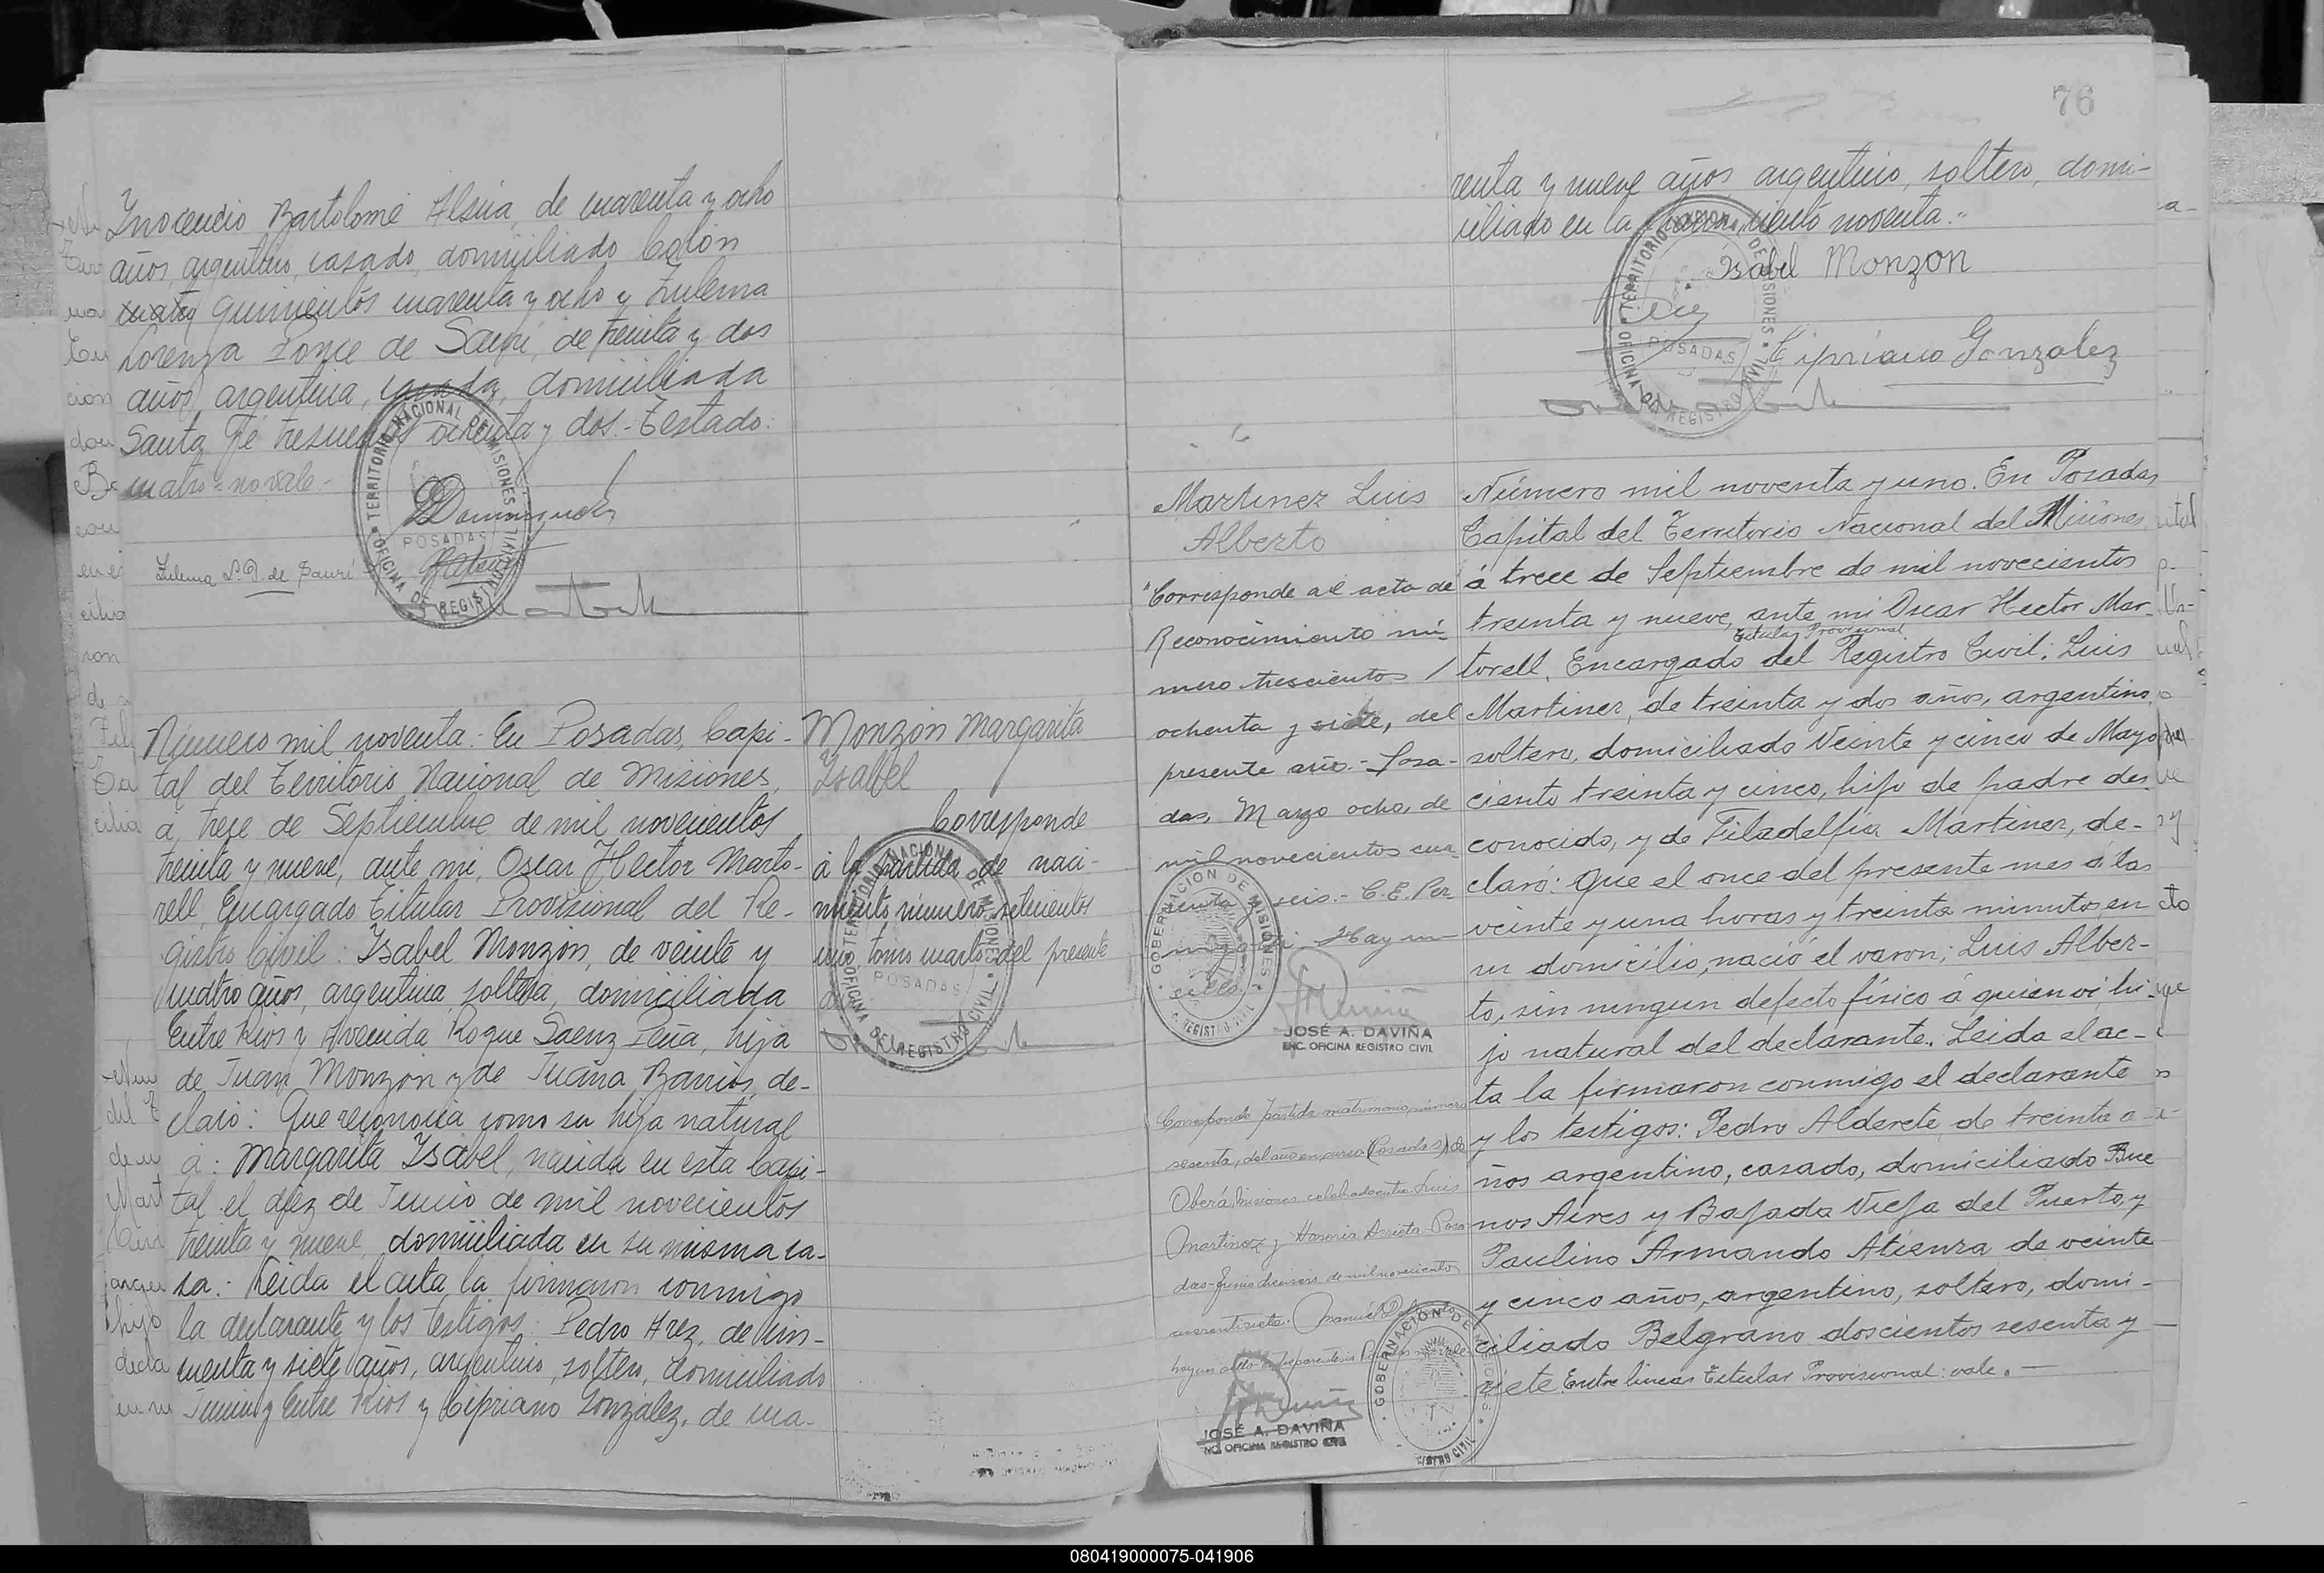 Inocencio Bartolomé Alsina, de cuarenta y ocho
años, argentino, casado, domiciliado Colón
cuatro quinientos cuarenta y ocho y Zulema
Lorenza Ponce de Sauri, de treinta y dos
años, argentina, casada, domiciliada
Santa Fé trescientos ochenta y dos.- Testado:
cuatro=no vale.-
TERRITORIO NACIONAL DE MISIONES
POSADAS
OFICINA DE REGISTRO CIVIL
Zulema L. P. de Sauri
Número mil noventa.- En Posadas, Capi-
tal del Territorio Nacional de Misiones,
á trece de Septiembre de mil novecientos
treinta y nueve, ante mi, Oscar Hector Marto-
rell, Encargado Titular Provisional del Re-
gistro Civil: Isabel Monzón, de veinte y
cuatro años, argentina, soltera, domiciliada
Entre Rios y Avenida Roque Saenz Peña, hija
de Juan Monzón y de Juana Barrios, de-
claró: Que reconocia como su hija natural
á: Margarita Isabel, nacida en esta Capi-
tal el diez de Junio de mil novecientos
treinta y nueve, domiciliada en su misma ca-
sa.- Leida el acta la firmaron conmigo
la declarante y los testigos: Pedro Arez, de cin-
cuenta y siete años, argentino, soltero, domiciliado
Junin y Entre Rios y Cipriano Gonzalez, de cua-
Monzón Margarita
Isabel
Corresponde
á la partida de naci-
miento número setecientos
uno tomo cuarto del presente
TERRITORIO NACIONAL DE MISIONES
POSADAS
OFICINA DE REGISTRO CIVIL
76
renta y nueve años argentino, soltero, domi-
ciliado en la ciento noventa.-
Isabel Monzon
TERRITORIO NACIONAL DE MISIONES
POSADAS
OFICINA DE REGISTRO CIVIL
Cipriano Gonzalez
Martinez Luis
Alberto
"Corresponde al acta de
Reconocimiento nú-
mero trescientos /
ochenta y siete, del
presente año.- Posa-
das, Mayo ocho, de
mil novecientos cua-
renta y seis.- C. E. Per
Hay un
sello
GOBERNACION DE MISIONES
REGISTRO CIVIL
JOSÉ A. DAVIÑA
ENC. OFICINA REGISTRO CIVIL
Corresponde partida matrimonio número
sesenta, del año en curso (Posadas) de
Oberá, Misiones celebrado entre Luis
Martinez y Honoria Acosta - Posa-
das - Junio dieciseis de mil novecientos
cuarentisiete.
hay un sello
GOBERNACION DE MISIONES
REGISTRO CIVIL
JOSÉ A. DAVIÑA
ENC. OFICINA REGISTRO CIVIL
Número mil noventa y uno. En Posadas
Capital del Territorio Nacional del Misiones
á trece de Septiembre de mil novecientos
treinta y nueve, ante mi Oscar Hector Mar-
Titular Provisional
torell, Encargado del Registro Civil; Luis
Martinez, de treinta y dos años, argentino,
soltero, domiciliado Veinte y cinco de Mayo
ciento treinta y cinco, hijo de padre des-
conocido, y de Filadelfia Martinez, de-
claró: Que el once del presente mes á las
veinte y una horas y treinta minutos, en
su domicilio, nació el varon; Luis Alber-
to, sin ningun defecto físico á quien ví, hi-
jo natural del declarante. Leida el ac-
ta la firmaron conmigo el declarante
y los testigos: Pedro Alderete, de treinta a-
ños argentino, casado, domiciliado Bue
nos Aires y Bajada Vieja del Puerto, y
Paulino Armando Atienza de veinte
y cinco años, argentino, soltero, domi-
ciliado Belgrano doscientos sesenta y
siete. Entre lineas Titular Provisional: vale.-
080419000075-041906